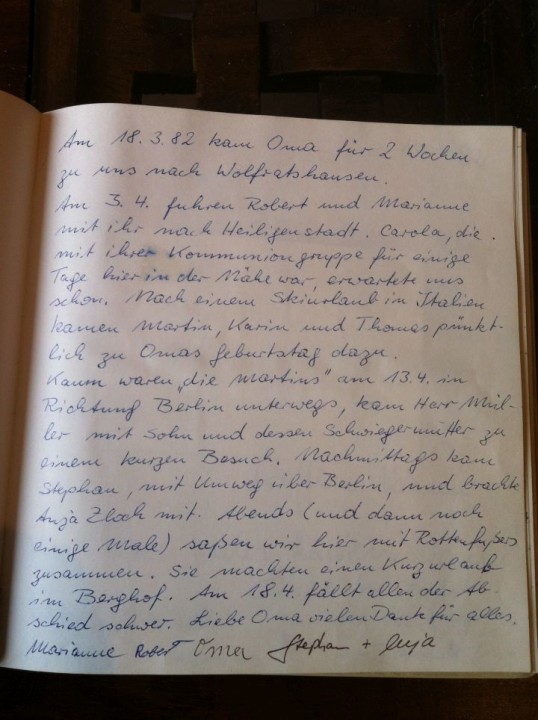 Am 18.3.82 kam Oma für 2 Wochen
zu uns nach Wolfratshausen.
Am 3.4. fuhren Robert und Marianne
mit ihr nach Heiligenstadt. Carola, die
mit ihrer Kommuniongruppe für einige
Tage hier in der Nähe war, erwartete uns
schon. Nach einem Skiurlaub in Italien
kamen Martin, Karin und Thomas pünkt-
lich zu Omas Geburtstag dazu.
Kaum waren „die Martins" am 13.4. in
Richtung Berlin unterwegs, kam Herr Mül-
ler mit Sohn und dessen Schwiegermutter zu
einem kurzen Besuch. Nachmittags kam
Stephan, mit Umweg über Berlin, und brachte
Anja Zloch mit. Abends (und dann noch
einige Male) saßen wir hier mit Rottenfußers
zusammen. Sie machten einen Kurzurlaub
im Berghof. Am 18.4. fällt allen der Ab-
schied schwer. Liebe Oma vielen Dank für alles.
Marianne Robert Oma Stephan + Anja